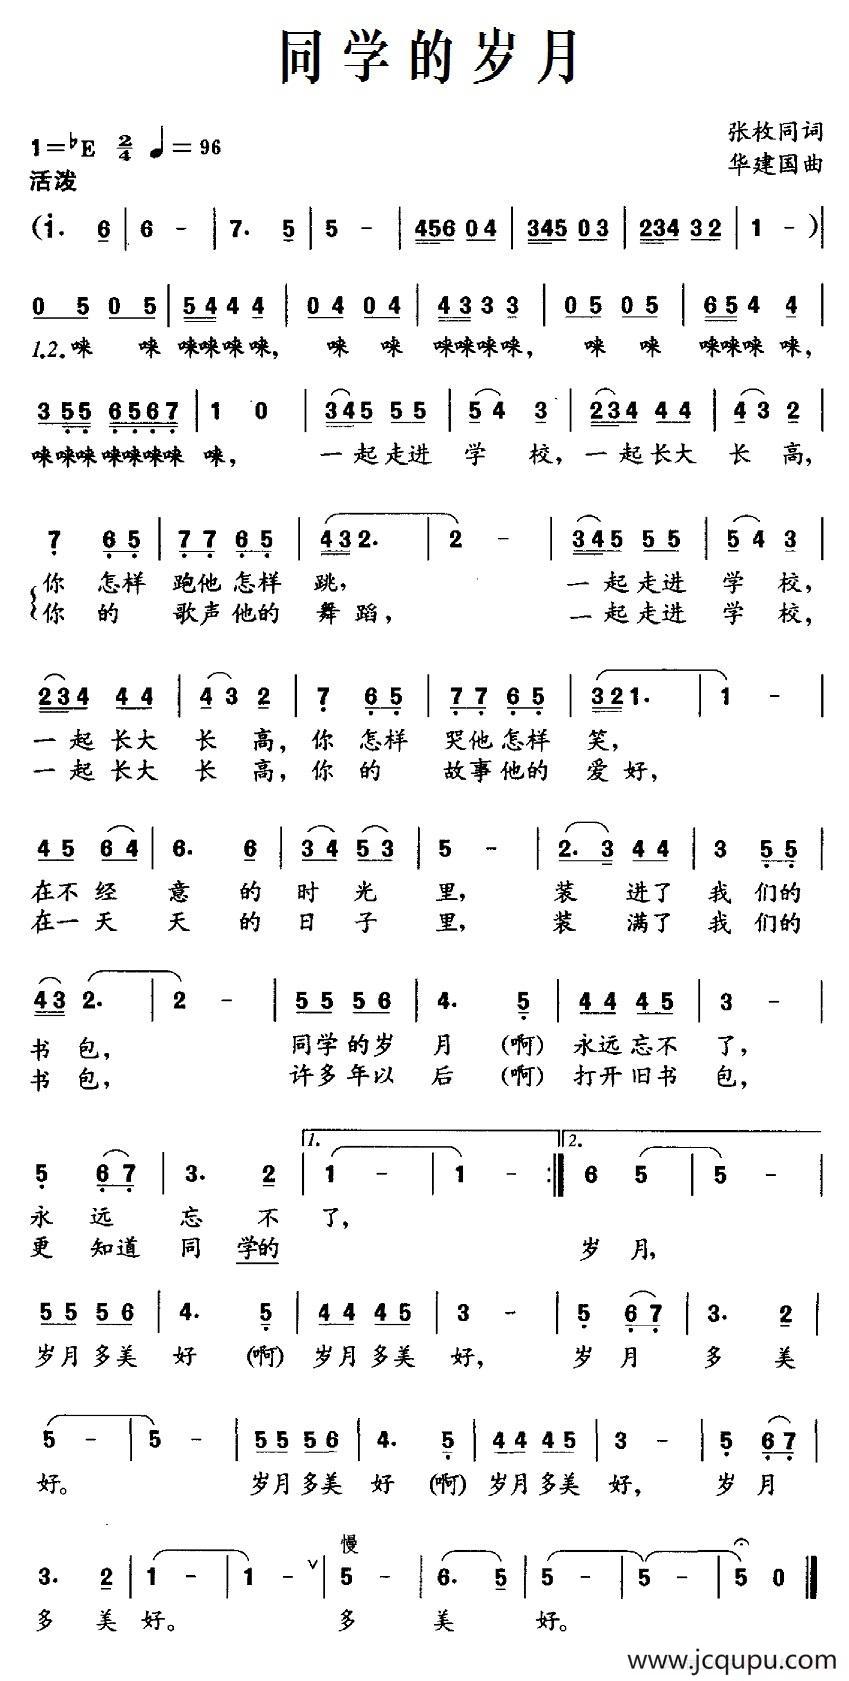 同学的岁月
1=♭E 2/4 ♩=96
张枚同词
华建国曲
活泼
(i. 6 | 6 - | 7. 5 | 5 - | 456 04 | 345 03 | 234 32 | 1 - )|
0 5 0 5 | 5 4 4 4 | 0 4 0 4 | 4 3 3 3 | 0 5 0 5 | 6 5 4 4 |
1.2.咪 咪 咪咪咪咪, 咪 咪 咪咪咪咪, 咪 咪 咪咪咪 咪,
3 5 5 6 5 6 7 | 1 0 | 345 5 5 | 5 4 3 | 234 4 4 | 4 3 2 |
咪咪咪 咪咪咪咪 咪, 一起走进 学 校, 一起长大 长 高,
7 6 5 | 7 7 6 5 | 432. | 2 - | 345 5 5 | 5 4 3 |
你 怎样 跑他怎样 跳, 一起走进 学 校,
你 的 歌声他的 舞 蹈, 一起走进 学 校,
234 4 4 | 4 3 2 | 7 6 5 | 7 7 6 5 | 321. | 1 - |
一起长大 长 高, 你 怎样 哭他怎样 笑,
一起长大 长 高, 你 的 故事他的 爱好,
4 5 6 4 | 6. 6 | 3 4 5 3 | 5 - | 2. 3 4 4 | 3 5 5 |
在不经 意 的 时 光 里, 装 进了 我 们的
在一天 天 的 日 子 里, 装 满了 我 们的
43 2. | 2 - | 5 5 5 6 | 4. 5 | 4 4 4 5 | 3 - |
书 包, 同学的岁 月 (啊) 永远忘不 了,
书 包, 许多年以 后 (啊) 打开旧书 包,
1. 2.
5 6 7 | 3. 2 | 1 - | 1 - :| 6 5 | 5 - |
永 远 忘 不 了,
更 知道 同 学的 岁 月,
5 5 5 6 | 4. 5 | 4 4 4 5 | 3 - | 5 6 7 | 3. 2 |
岁月多美 好 (啊) 岁月多美 好, 岁 月 多 美
5 - | 5 - | 5 5 5 6 | 4. 5 | 4 4 4 5 | 3 - | 5 6 7 |
好。 岁月多美 好 (啊) 岁月多美 好, 岁 月
慢
3. 2 | 1 - | 1 - ∨ | 5 - | 6. 5 | 5 - | 5 - | 5 0 ‖
多 美 好。 多 美 好。
www.jcqupu.com